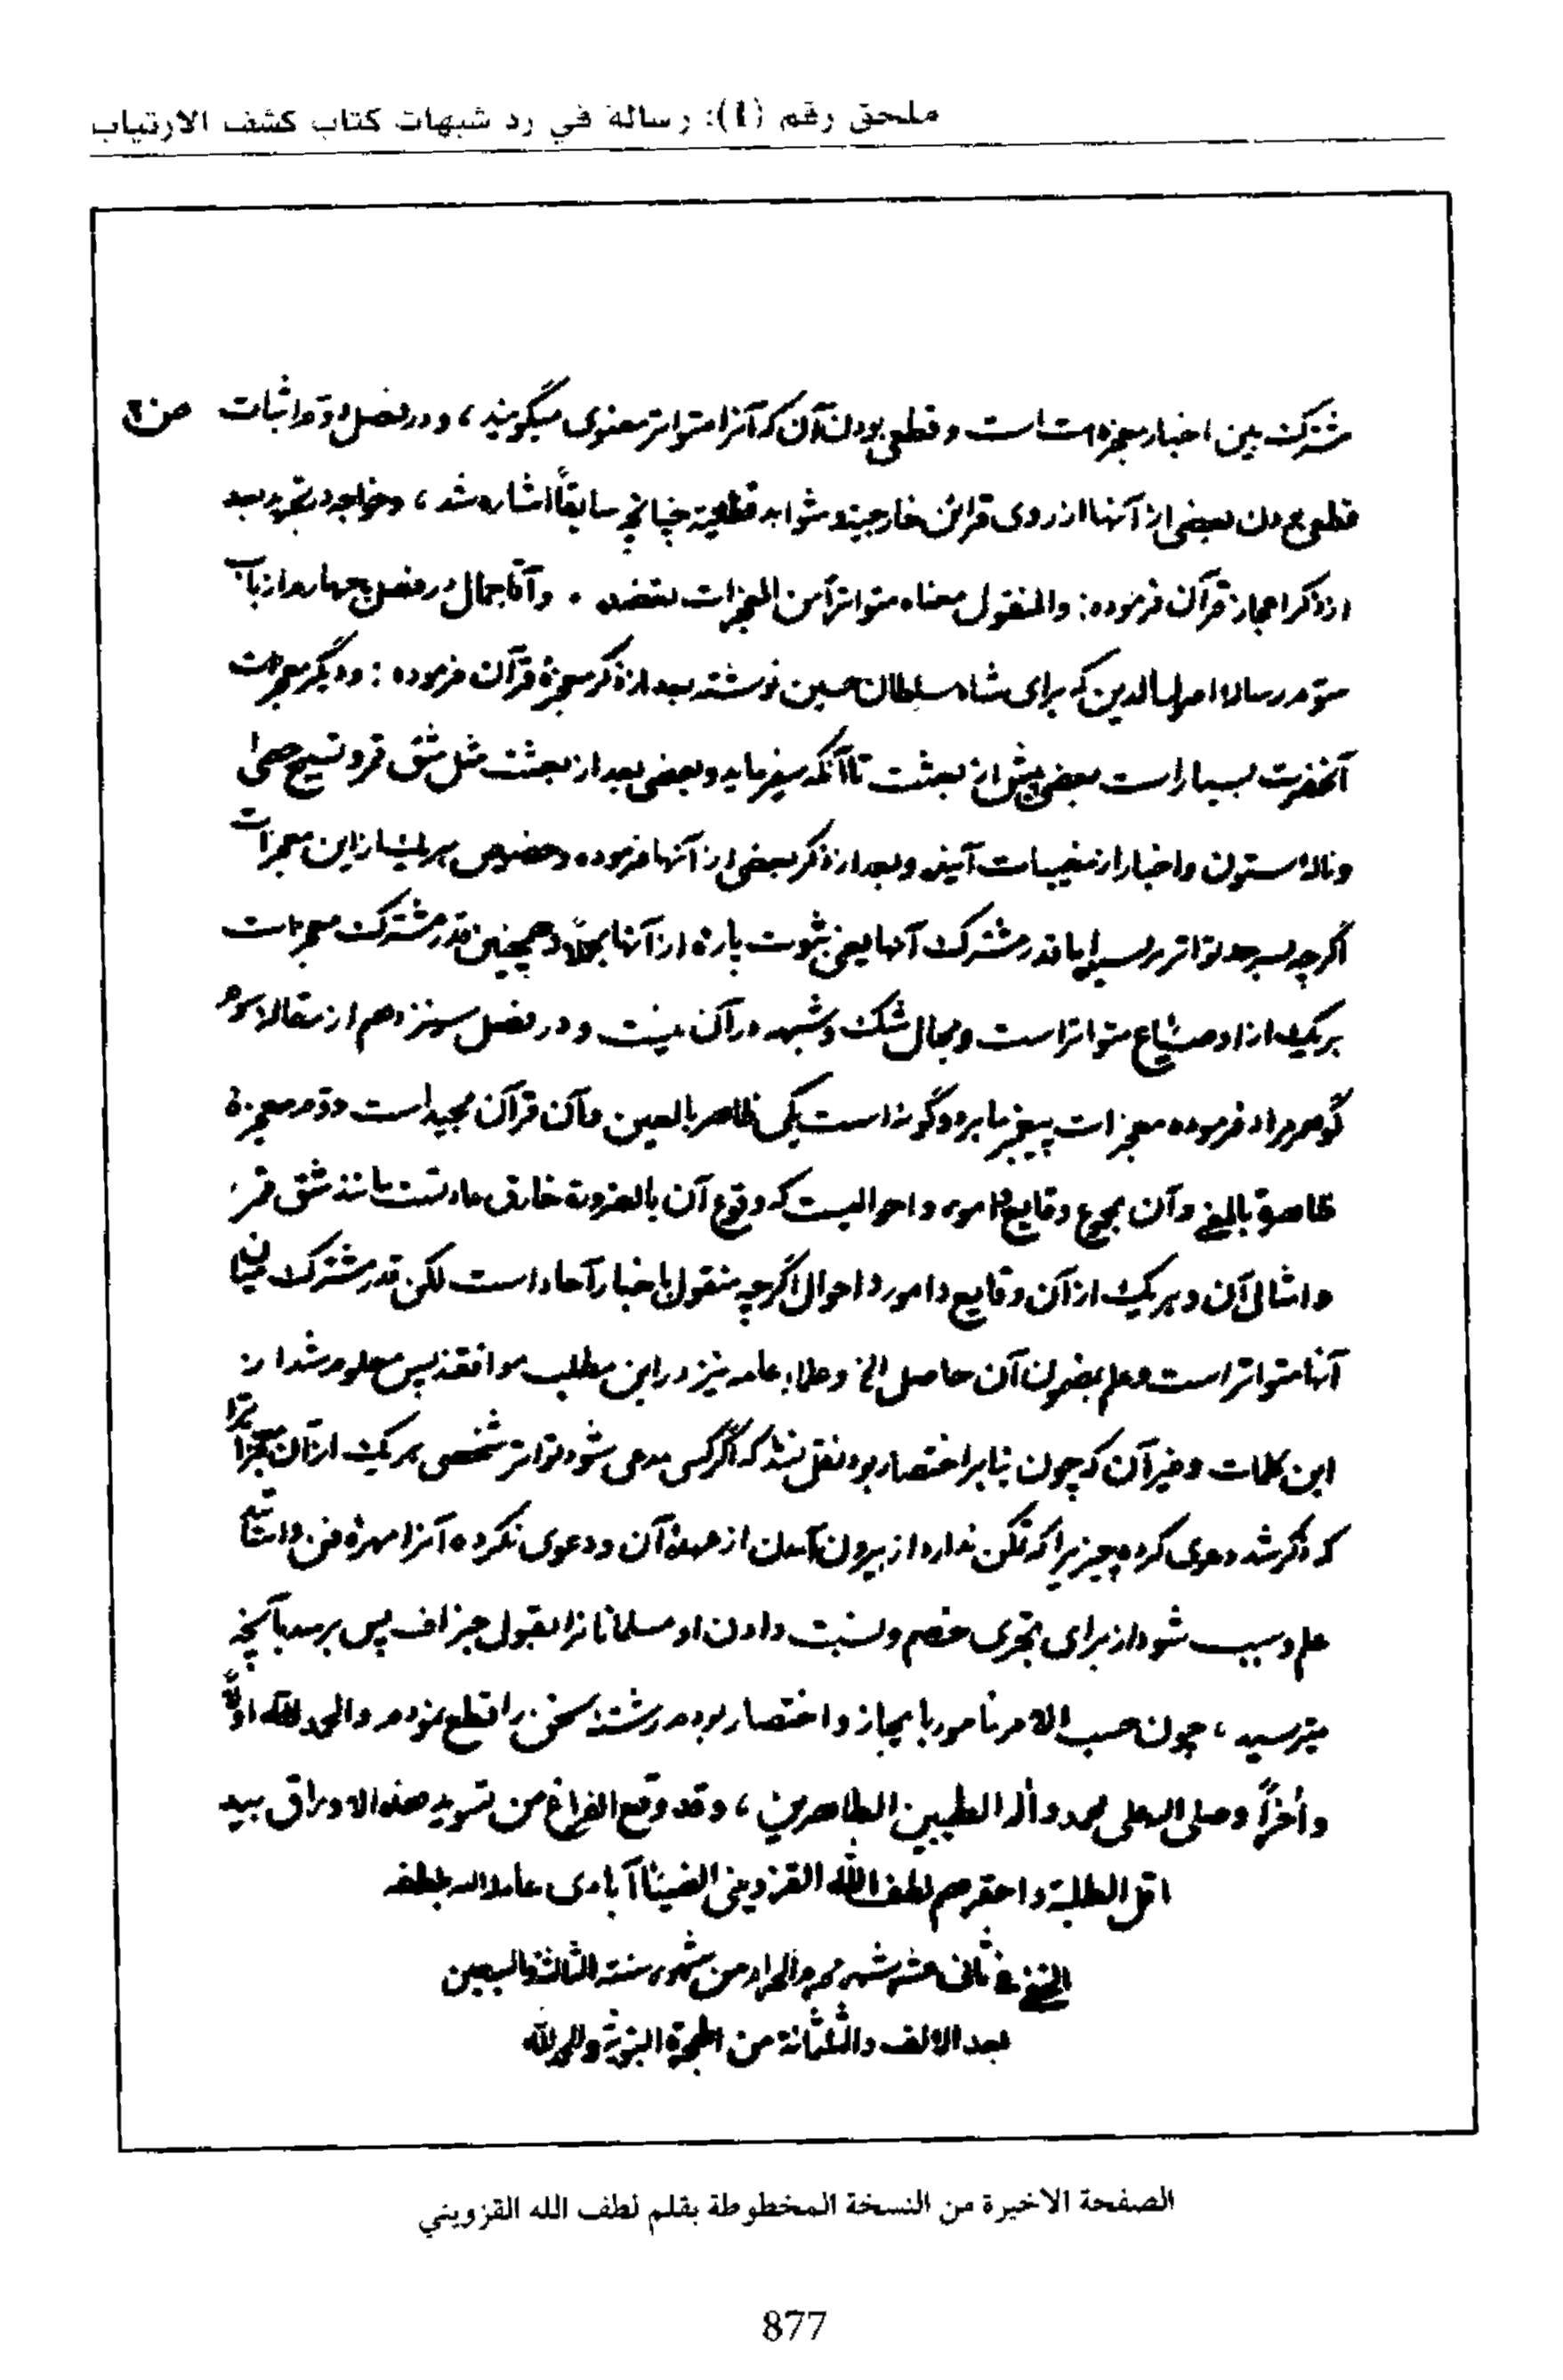 ملحق رقم (1): رسالة في رد شبهات كتاب كشف الارتياب
مشترك بين اخبار معجزات است و قطعى بودن آن كه آنرا متواتر معنوى ميگويند ، و در فصل دوم اثبات
قطعى بودن بعضى از آنها از روى قرائن خارجية و شواهد قطعية چنانچه سابقاً اشاره شد ، و خواجه در تجريد بعد
از ذكر اعجاز قرآن فرموده : والمنقول معناه متواتراً من المعجزات يعضده . وآقا جمال در فصل چهارم از باب
سوم رساله اصول الدين كه براى شاه سلطان حسين نوشته بعد از ذكر معجزهٔ قرآن فرموده : و ديگر معجزات
آنحضرت بسيار است بعضى پيش از بعثت تا آنكه ميفرمايد و بعضى بعد از بعثت مثل شق قمر و تسبيح حصى
و نالهٔ ستون و اخبار از مغيبات آتيه و بعد از ذكر بعضى از آنها فرموده و خصوص هر يك از اين معجزات
اگرچه بسرحد تواتر نرسيده اما قدر مشترك آنها يعنى ثبوت پارهٔ از آنها مجملاً و همچنين قدر مشترك معجزات
هر يك از اوصياء متواتر است و مجال شك و شبهه در آن نيست و در فصل سيزدهم از مقاله سوم
گوهر مراد فرموده معجزات پيغمبر ما بر دو گونه است يكى ظاهر بالعين و آن قرآن مجيد است دوم معجزهٔ
ظاهرة بالمعنى و آن مجموع وقايع و امور و احواليست كه وقوع آن بالضرورة خارق عادتست مانند شق قمر
و امثال آن و هر يك از آن وقايع و امور و احوال اگرچه منقول باخبار آحاد است لكن قدر مشترك ميان
آنها متواتر است و علم بمضمون آن حاصل الخ و علماء عامه نيز در اين مطلب موافقند پس معلوم شد از
اين كلمات و غير آن كه چون بنا بر اختصار بود نقل نشد كه اگر كسى مدعى شود تواتر شخصى هر يك از آن معجزات را
كه ذكر شد دعوى كرده چيزيرا كه تمكن ندارد از بيرون آمدن از عهدهٔ آن و دعوى نكرده آنرا مهرهٔ فن و اساتيد
علم و سبب شود از براى تجرى خصم و نسبت دادن او مسلمانان را بقول جزاف پس برسد بآنچه
ميترسيد ، چون حسب الامر مأمور بايجاز و اختصار بودم رشتهٔ سخن را قطع نمودم والحمد لله اولاً
وأخراً وصلى الله على محمد وأله الطيبين الطاهرين ، وقد وقع الفراغ من تسويد هذه الاوراق بيد
اقل الطلبة واحقرهم لطف الله القزوينى الضياء آبادى عامله الله بلطفه
الخفى فى ثانى عشر شهر محرم الحرام من شهور سنة الثالثة والسبعين
بعد الالف والثلثمائة من الهجرة النبوية والحمد لله
الصفحة الاخيرة من النسخة المخطوطة بقلم لطف الله القزويني
877